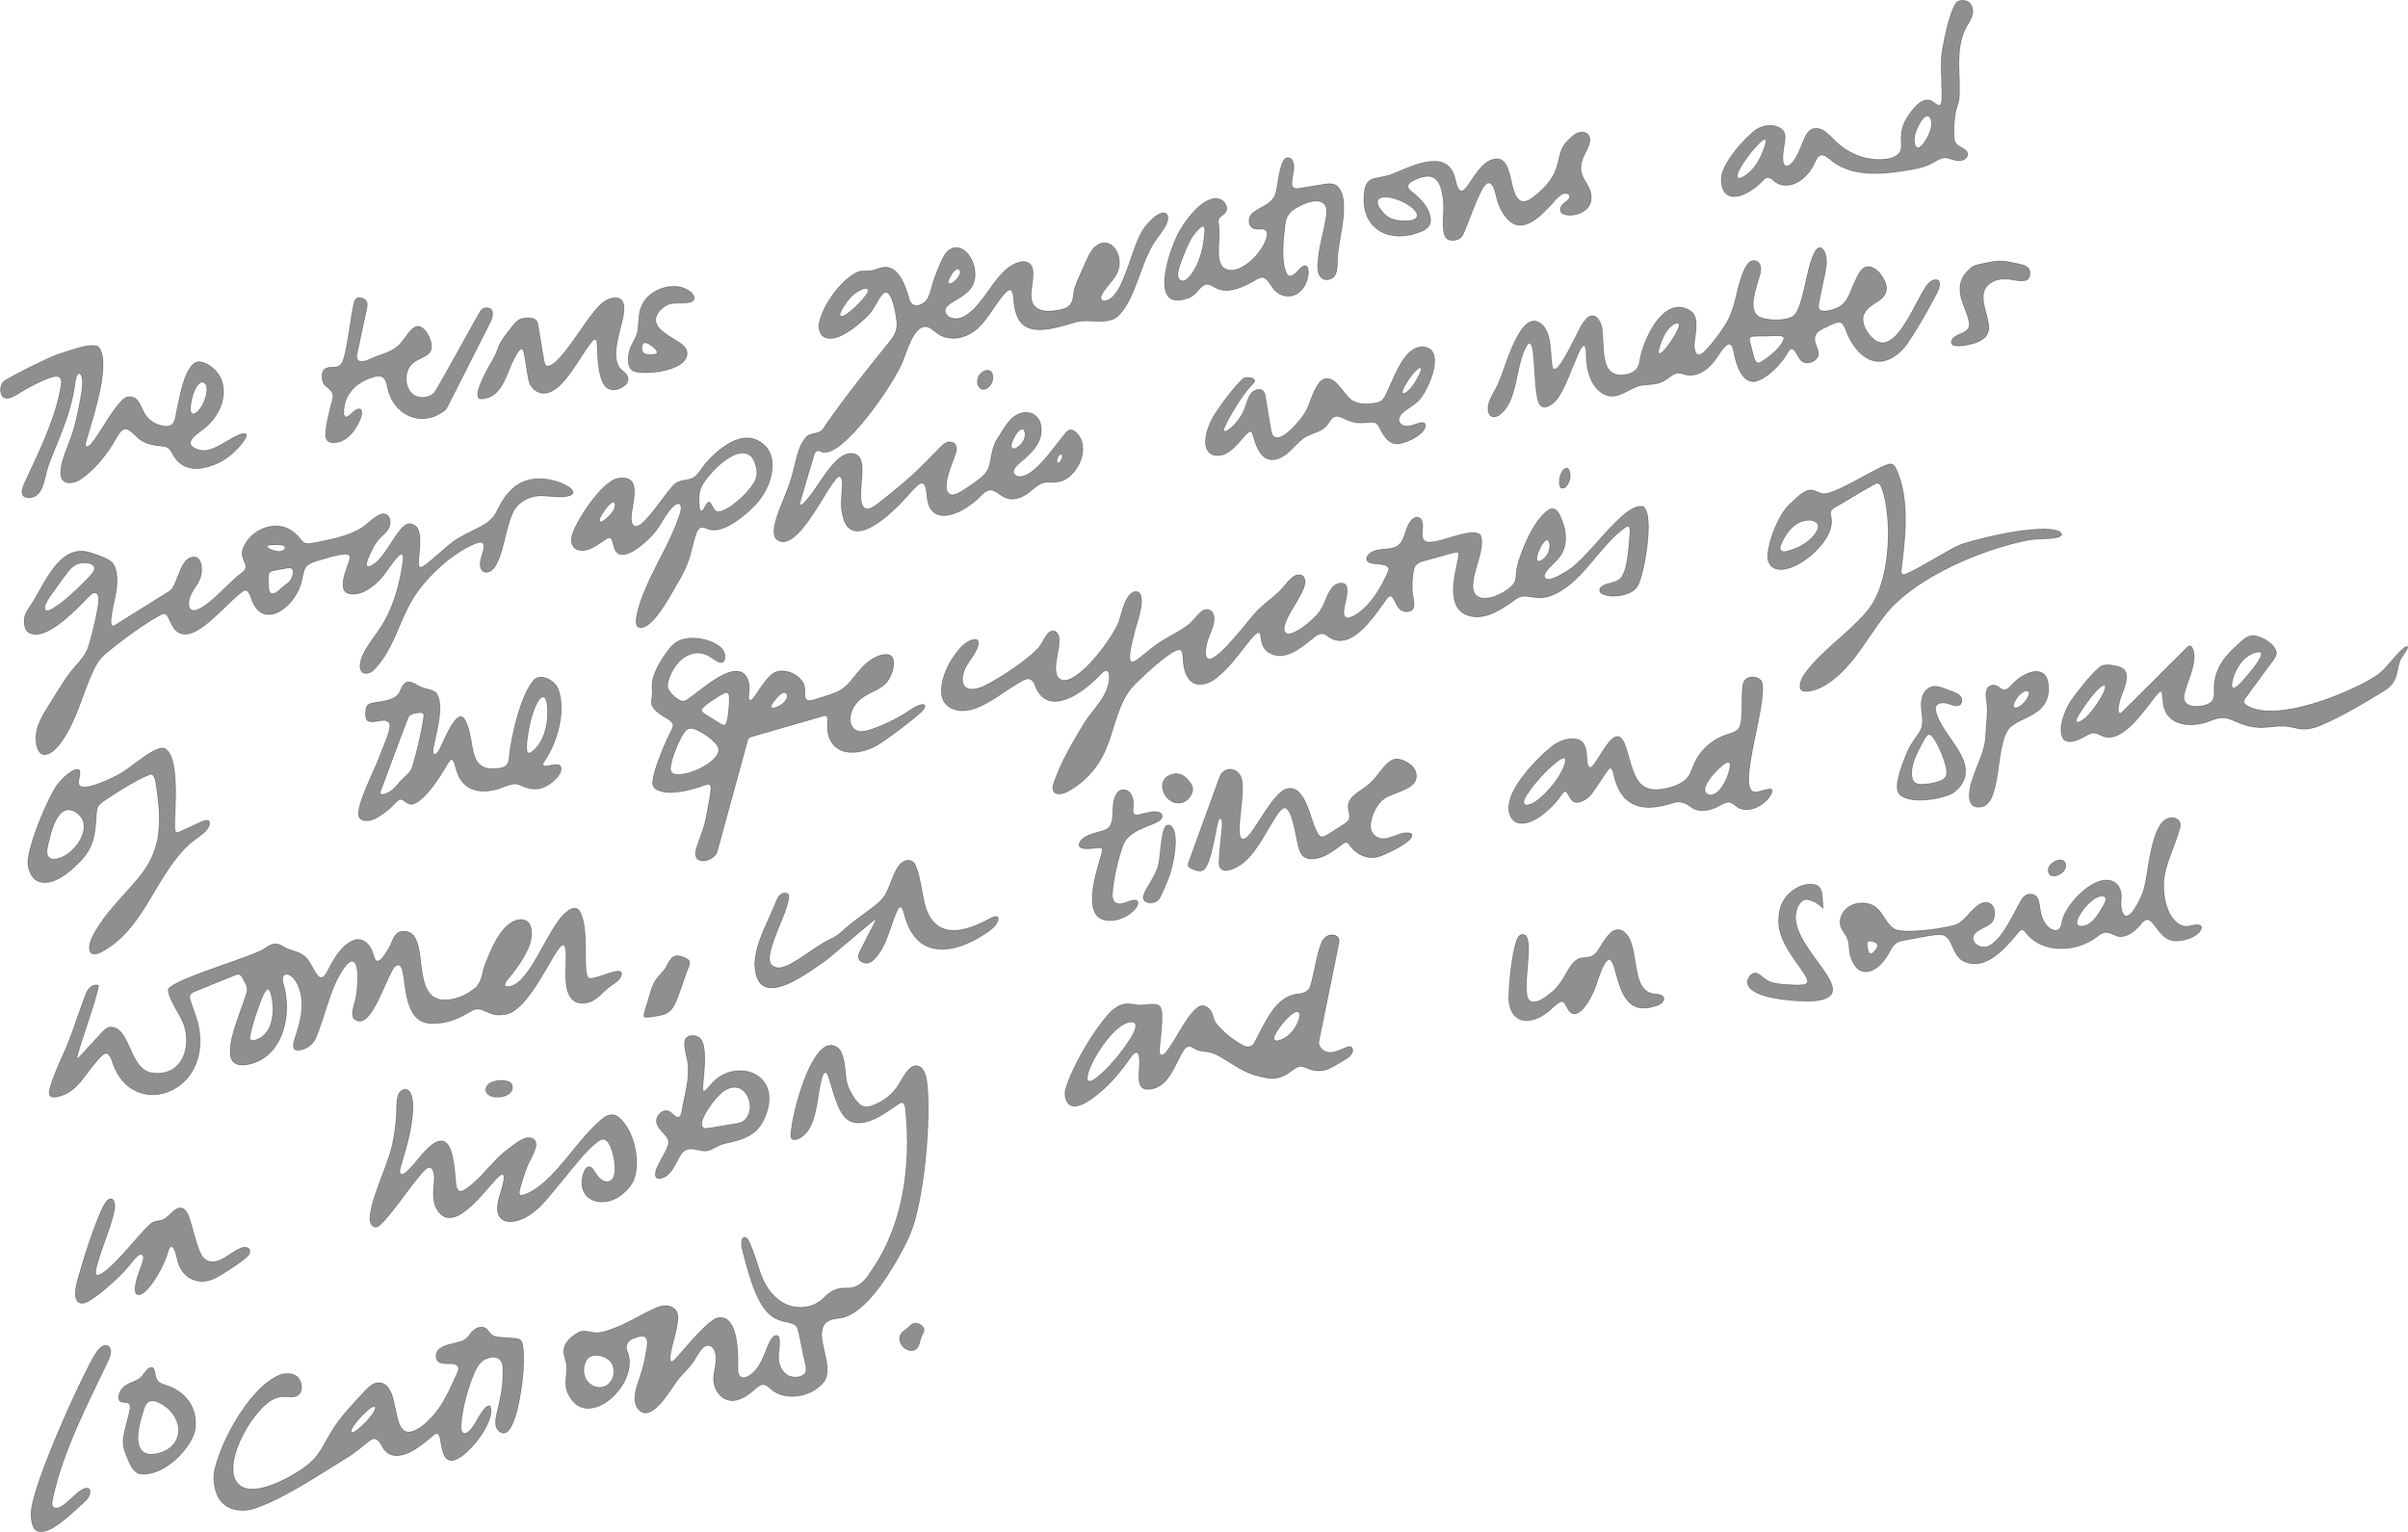 The terms generations and
geographies are makers
of the specificities of
women, in time and space
in history and in social
location.